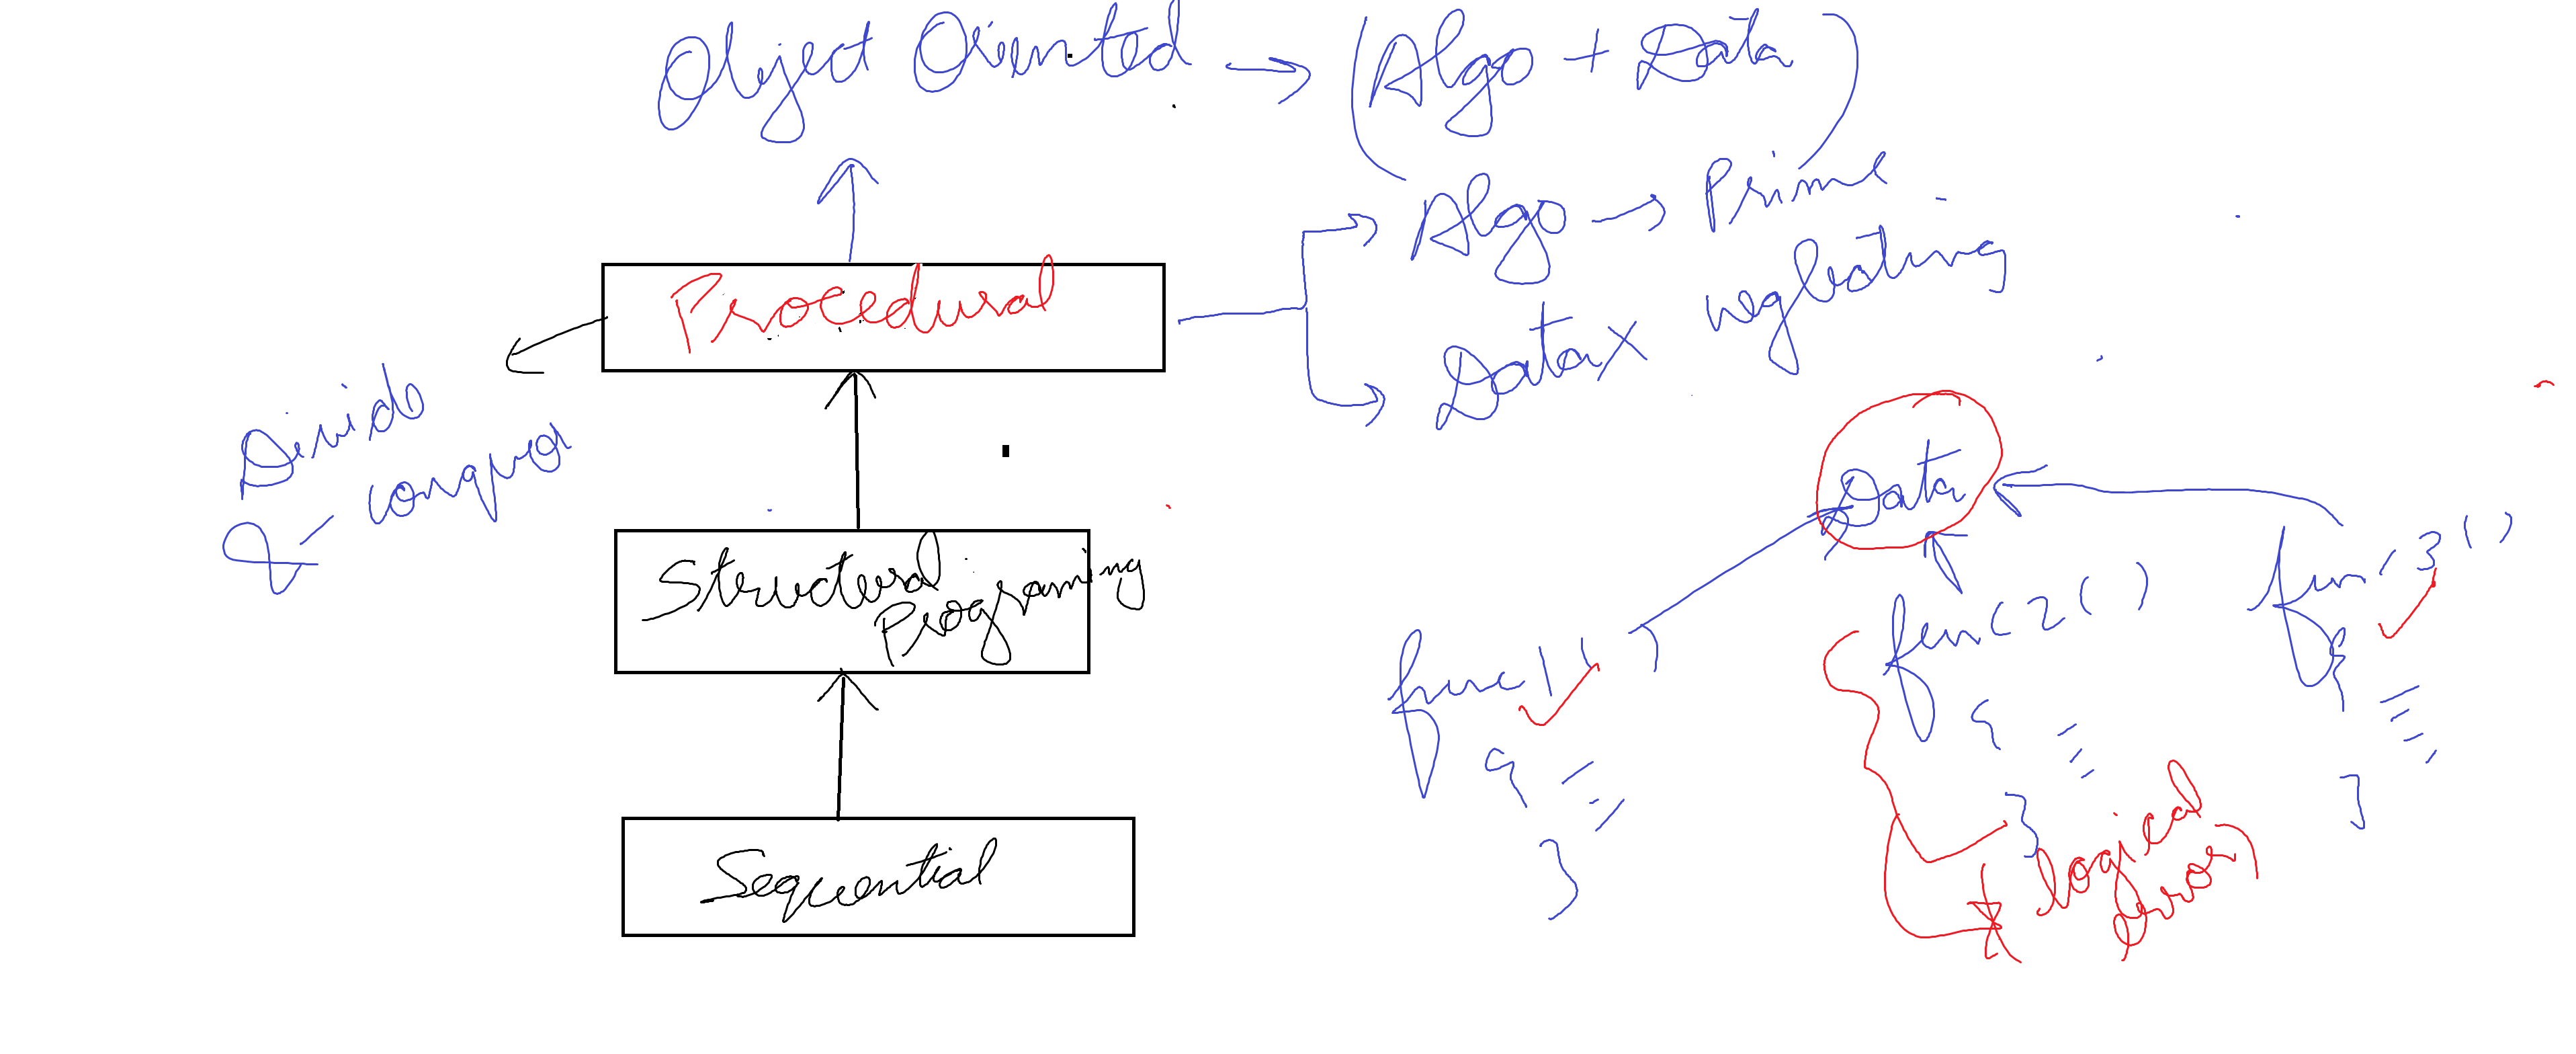 Object Oriented → (Algo + Data)
Procedural
Algo → Prime
Data x neglecting
Divide
& conquer
Structural
Programing
Sequential
Data
func1()
{
}
func2()
{
}
func3()
{
}
logical
error